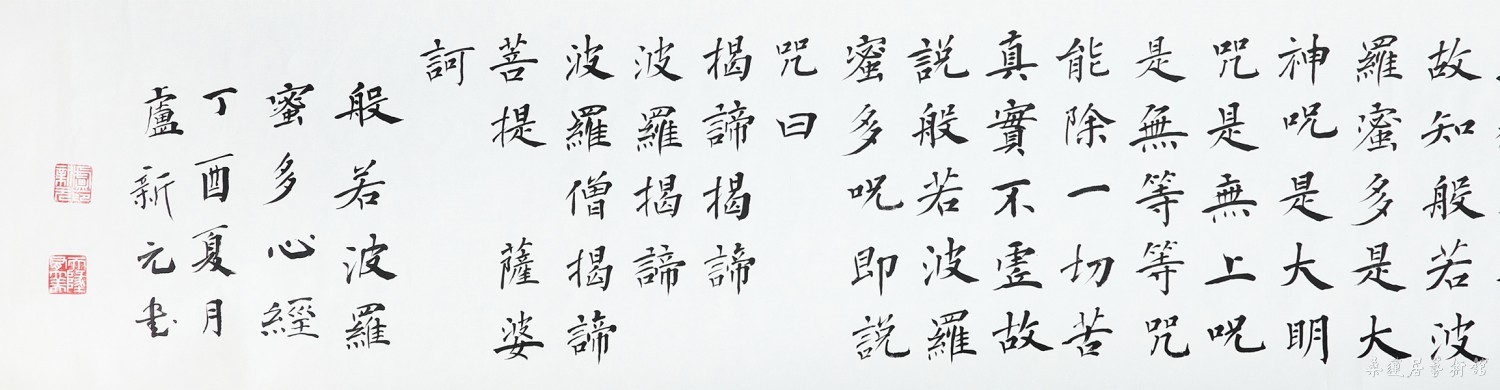 故知般若波
羅蜜多是大
神呪是大明
咒是無上呪
是無等等咒
能除一切苦
真實不虛故
說般若波羅
蜜多呪即說
咒曰
揭諦揭諦
波羅揭諦
波羅僧揭諦
菩提 薩婆
訶
般若波羅
蜜多心經
丁酉夏月
盧新元書
桑蓮居藝術館